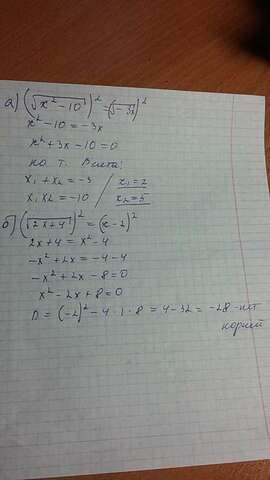 а) (√x²-10)² = (√-3x)²
x² - 10 = -3x
x² + 3x - 10 = 0
по т. Виета:
x₁ + x₂ = -3 / x₁ = 2
x₁ x₂ = -10 / x₂ = 5
б) (√2x+4)² = (x-2)²
2x+4 = x²-4
-x²+2x = -4-4
-x²+2x-8=0
x²-2x+8=0
D = (-2)² - 4·1·8 = 4-32 = -28 - нет
корней